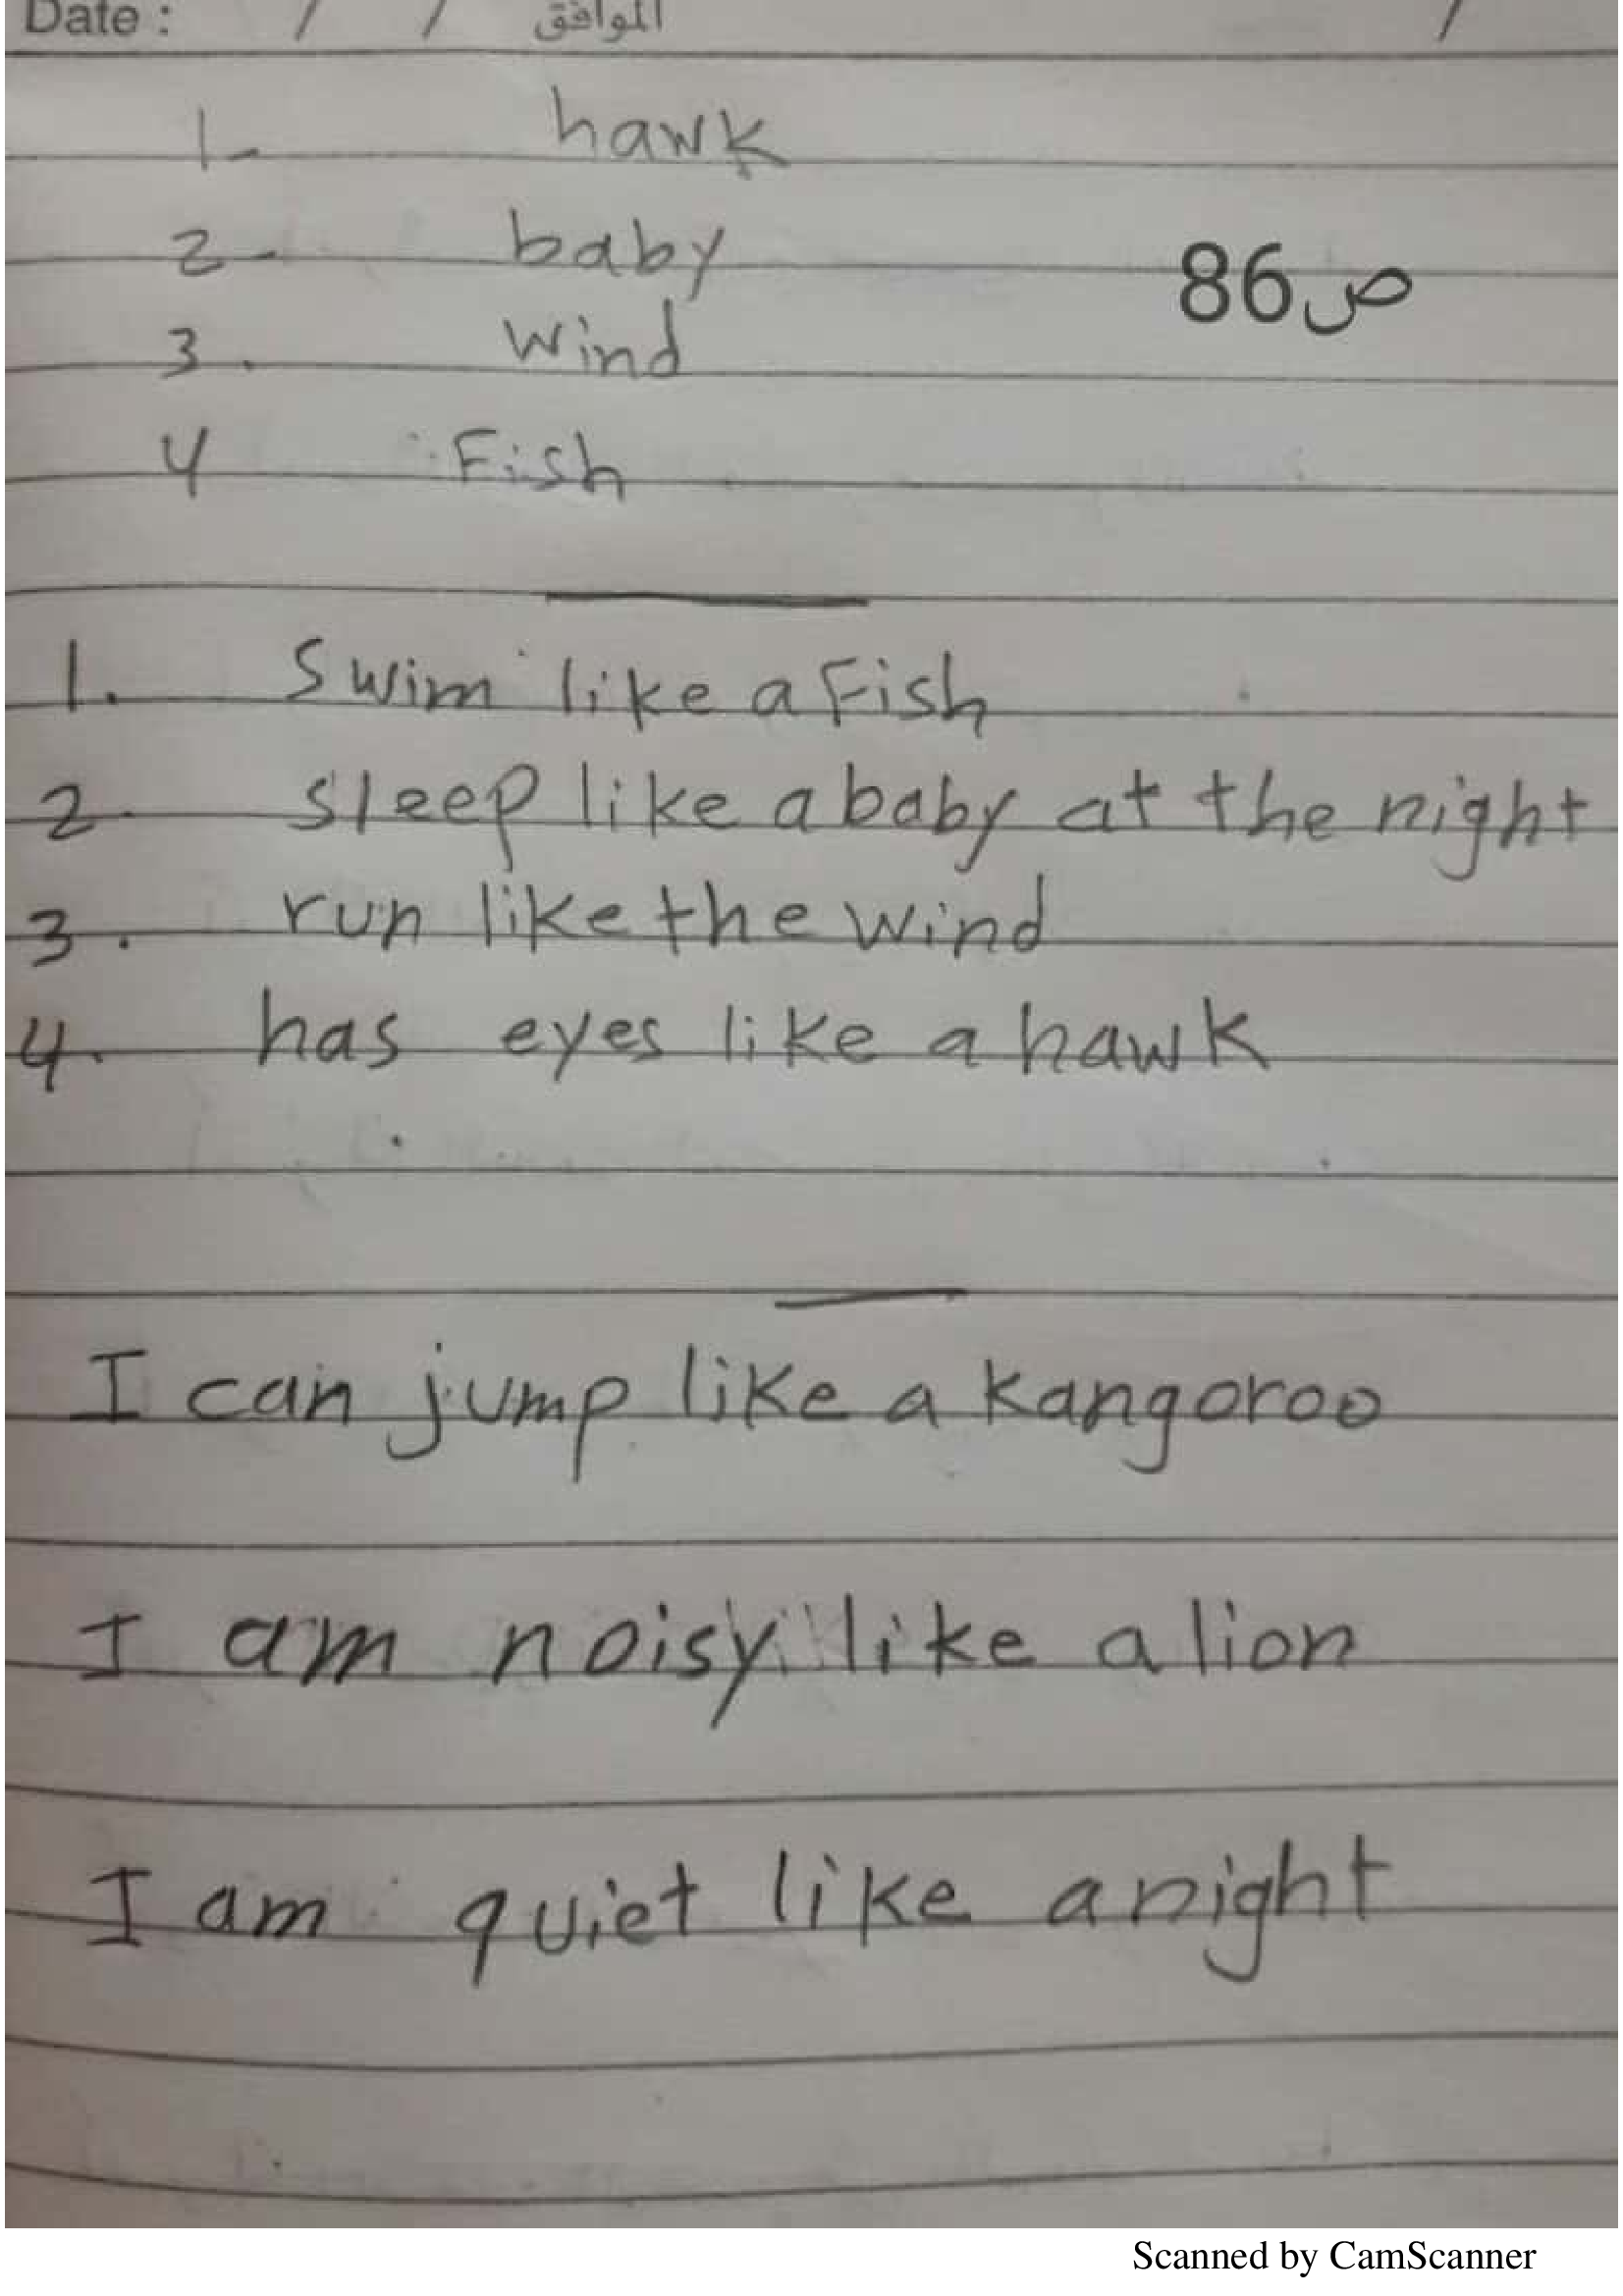 Date : / / الموافق /
1- hawk
2- baby
ص86
3. wind
4 Fish
1. Swim like a Fish
2. sleep like a baby at the night
3. run like the wind
4. has eyes like a hawk
I can jump like a kangoroo
I am noisy like a lion
I am quiet like a night
Scanned by CamScanner